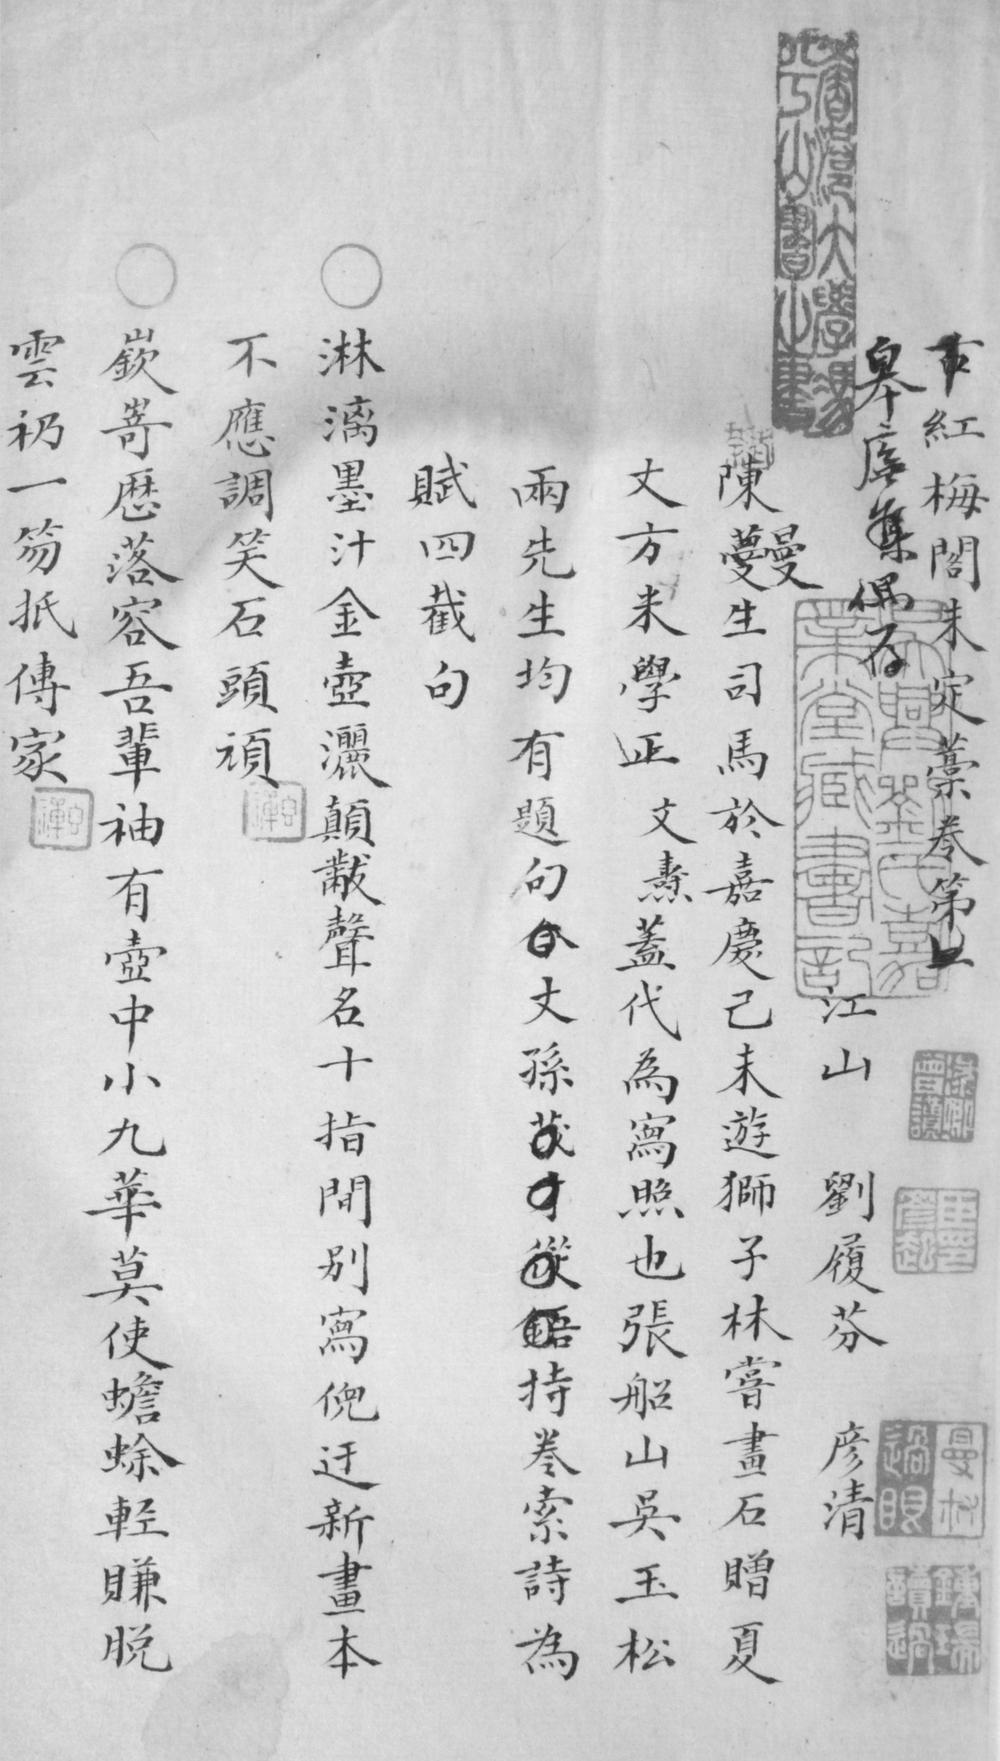 古紅梅閣未定藁卷第上
皋廡集偶存
江山 劉履芬 彦清
陳蔓曼生司馬於嘉慶己未遊獅子林嘗畫石贈夏
丈方米學正文燾蓋代為寫照也張船山吳玉松
兩先生均有題句今丈孫茂才從鋙持卷索詩為
賦四截句
淋漓墨汁金壺灑顛黻聲名十指間别寫倪迂新畫本
不應調笑石頭頑
嶔嵜歷落容吾輩袖有壺中小九華莫使蟾蜍輕賺脱
雲礽一笏抵傳家